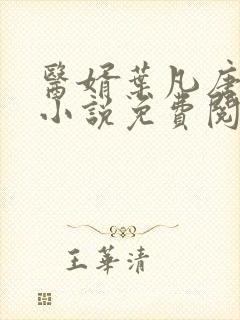 醫婿葉凡唐
小說免費閱
王華清